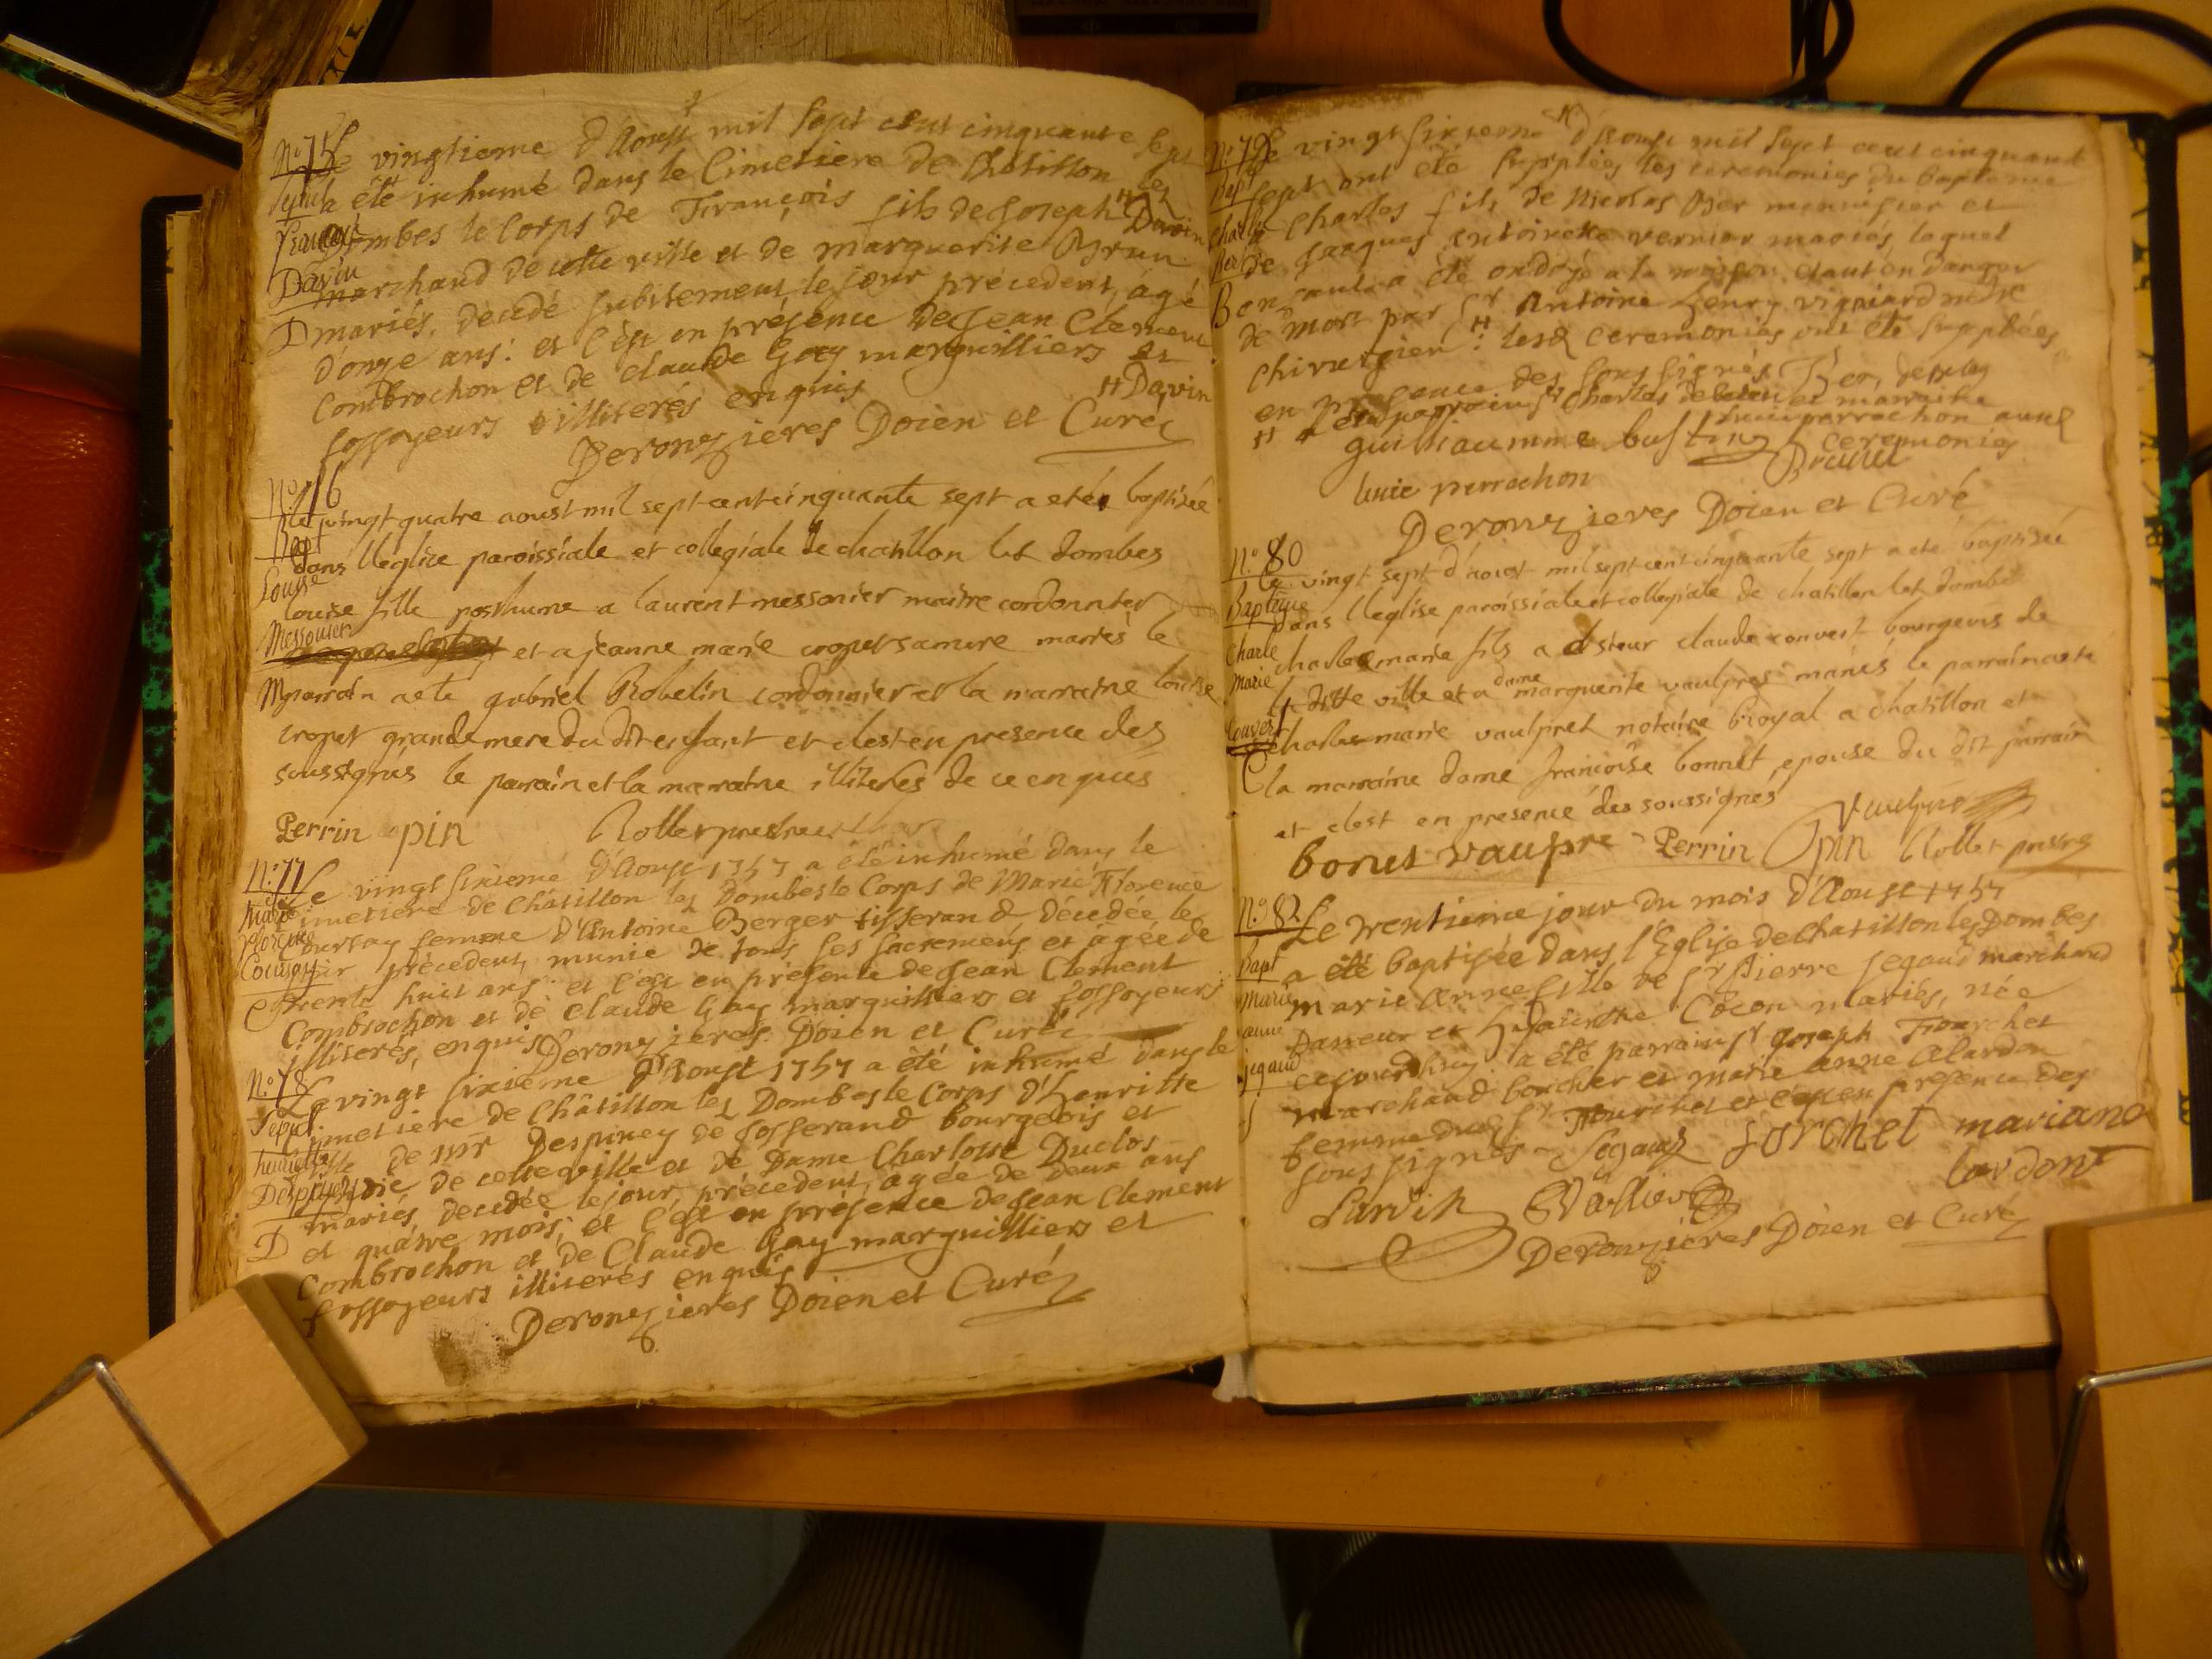 N.º 75 Le vingtieme d'Aoust mil sept cent cinquante sept
Sepult. a été inhumé dans le Cimetiere de Châtillon les
François Dombes le Corps de François fils de Joseph # Davin
Davin marchand de cette ville et de marguerite Brun
D mariés, decedé subitement le jour précedent, agé
d'onze ans: et c'est en présence de Jean Clement
Combrochon et de claude Gay marguilliers et
fossoyeurs illiterés enquis # Davin
Deronzieres Doien et Curé
N.º 76
le vingt quatre aoust mil sept cent cinquante sept a eté baptisée
Bapt dans lleglise paroissiale et collegiale de chatillon les dombes
Louise louise fille posthume a laurent messonier maitre cordonnier
Messonier et a jeanne marie cropet sa mere mariés le
M parrain a ete gabriel Robelin cordonnier et la marraine louise
cropet grande mere du dit enfant et c'est en presence des
soussignés le parrain et la marraine illiterés de ce enquis
Perrin pin Rollet prestre
N.º 77 Le vingt sixieme d'Aoust 1757 a été inhumé dans le
Cimetiere de Châtillon les Dombes le Corps de Marie Florence
Marie Florence Coursay femme d'Antoine Berger tisserand décédée le
Coursay jour précedent, munie de tous ses sacremens et agée de
trente huit ans: et c'est en présence de Jean Clement
Combrochon et de claude Gay marguilliers et fossoyeurs
illiterés, enquis Deronzieres Doien et Curé
N.º 78 Le vingt sixieme d'Aoust 1757 a été inhumé dans le
Sepul. Cimetiere de Châtillon les Dombes le Corps d'henriette
henriette fille de mr Despiney de Josserand bourgeois et
Despiney de cette ville et de Dame Charlotte Duclos
D mariés, decedée le jour précedent, agée de deux ans
et quatre mois; et c'est en présence de Jean Clement
Combrochon et de Claude Gay marguilliers et
fossoyeurs illiterés enquis
Deronzieres Doien et Curé
N.º 79 Le vingt sixieme d'Aoust mil sept cent cinquante
Bapt sept ont été supplées les ceremonies du bapteme
Charle a Charles fils de Nicolas Ber menuisier et
Ber de Jacques Antoinette vernier mariés, lequel
enfant a été ondoyé a la maison etant en danger
de mort par Sr Antoine henry vigniard
chirurgien: lesd ceremonies ont été supplées
en présence des soussignés Ber,
guilliaumme
ceremonies
Brunet
lucie perrochon
Deronzieres Doien et Curé
N.º 80
le vingt sept d'aoust mil sept cent cinquante sept a eté baptisée
Bapteme dans lleglise paroissiale et collegiale de chatillon les dombes
Charle charles marie fils a sieur claude convert bourgeois de
Marie la ditte ville et a dame marguerite vaulpré mariés le parrain a ete
Convert charles marie vaulpret notaire Royal a chatillon et
C la marraine dame francoise bonnet epouse du dit parrain
et c'est en presence des soussignés Vaulpré
bonet vaupre Perrin pin Rollet prestre
N.º 82 Le trentieme jour du mois d'Aoust 1757
Bapt a été baptisée dans l'Eglise de Châtillon les Dombes
Marie marie Anne fille de Sr Pierre Segaud marchand
anne Tanneur et Cocon mariés, née
segaud cejourdhuy: a été parrain Sr Joseph Fourchet
S marchand boucher et marie anne Alardon
femme dud Sr Fourchet et c'est en présence des
soussignés Segaud forchet mariane
lardont
Deronzieres Doien et Curé